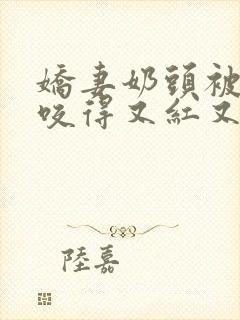 嬌妻奶頭被
咬得又紅又
陸嘉